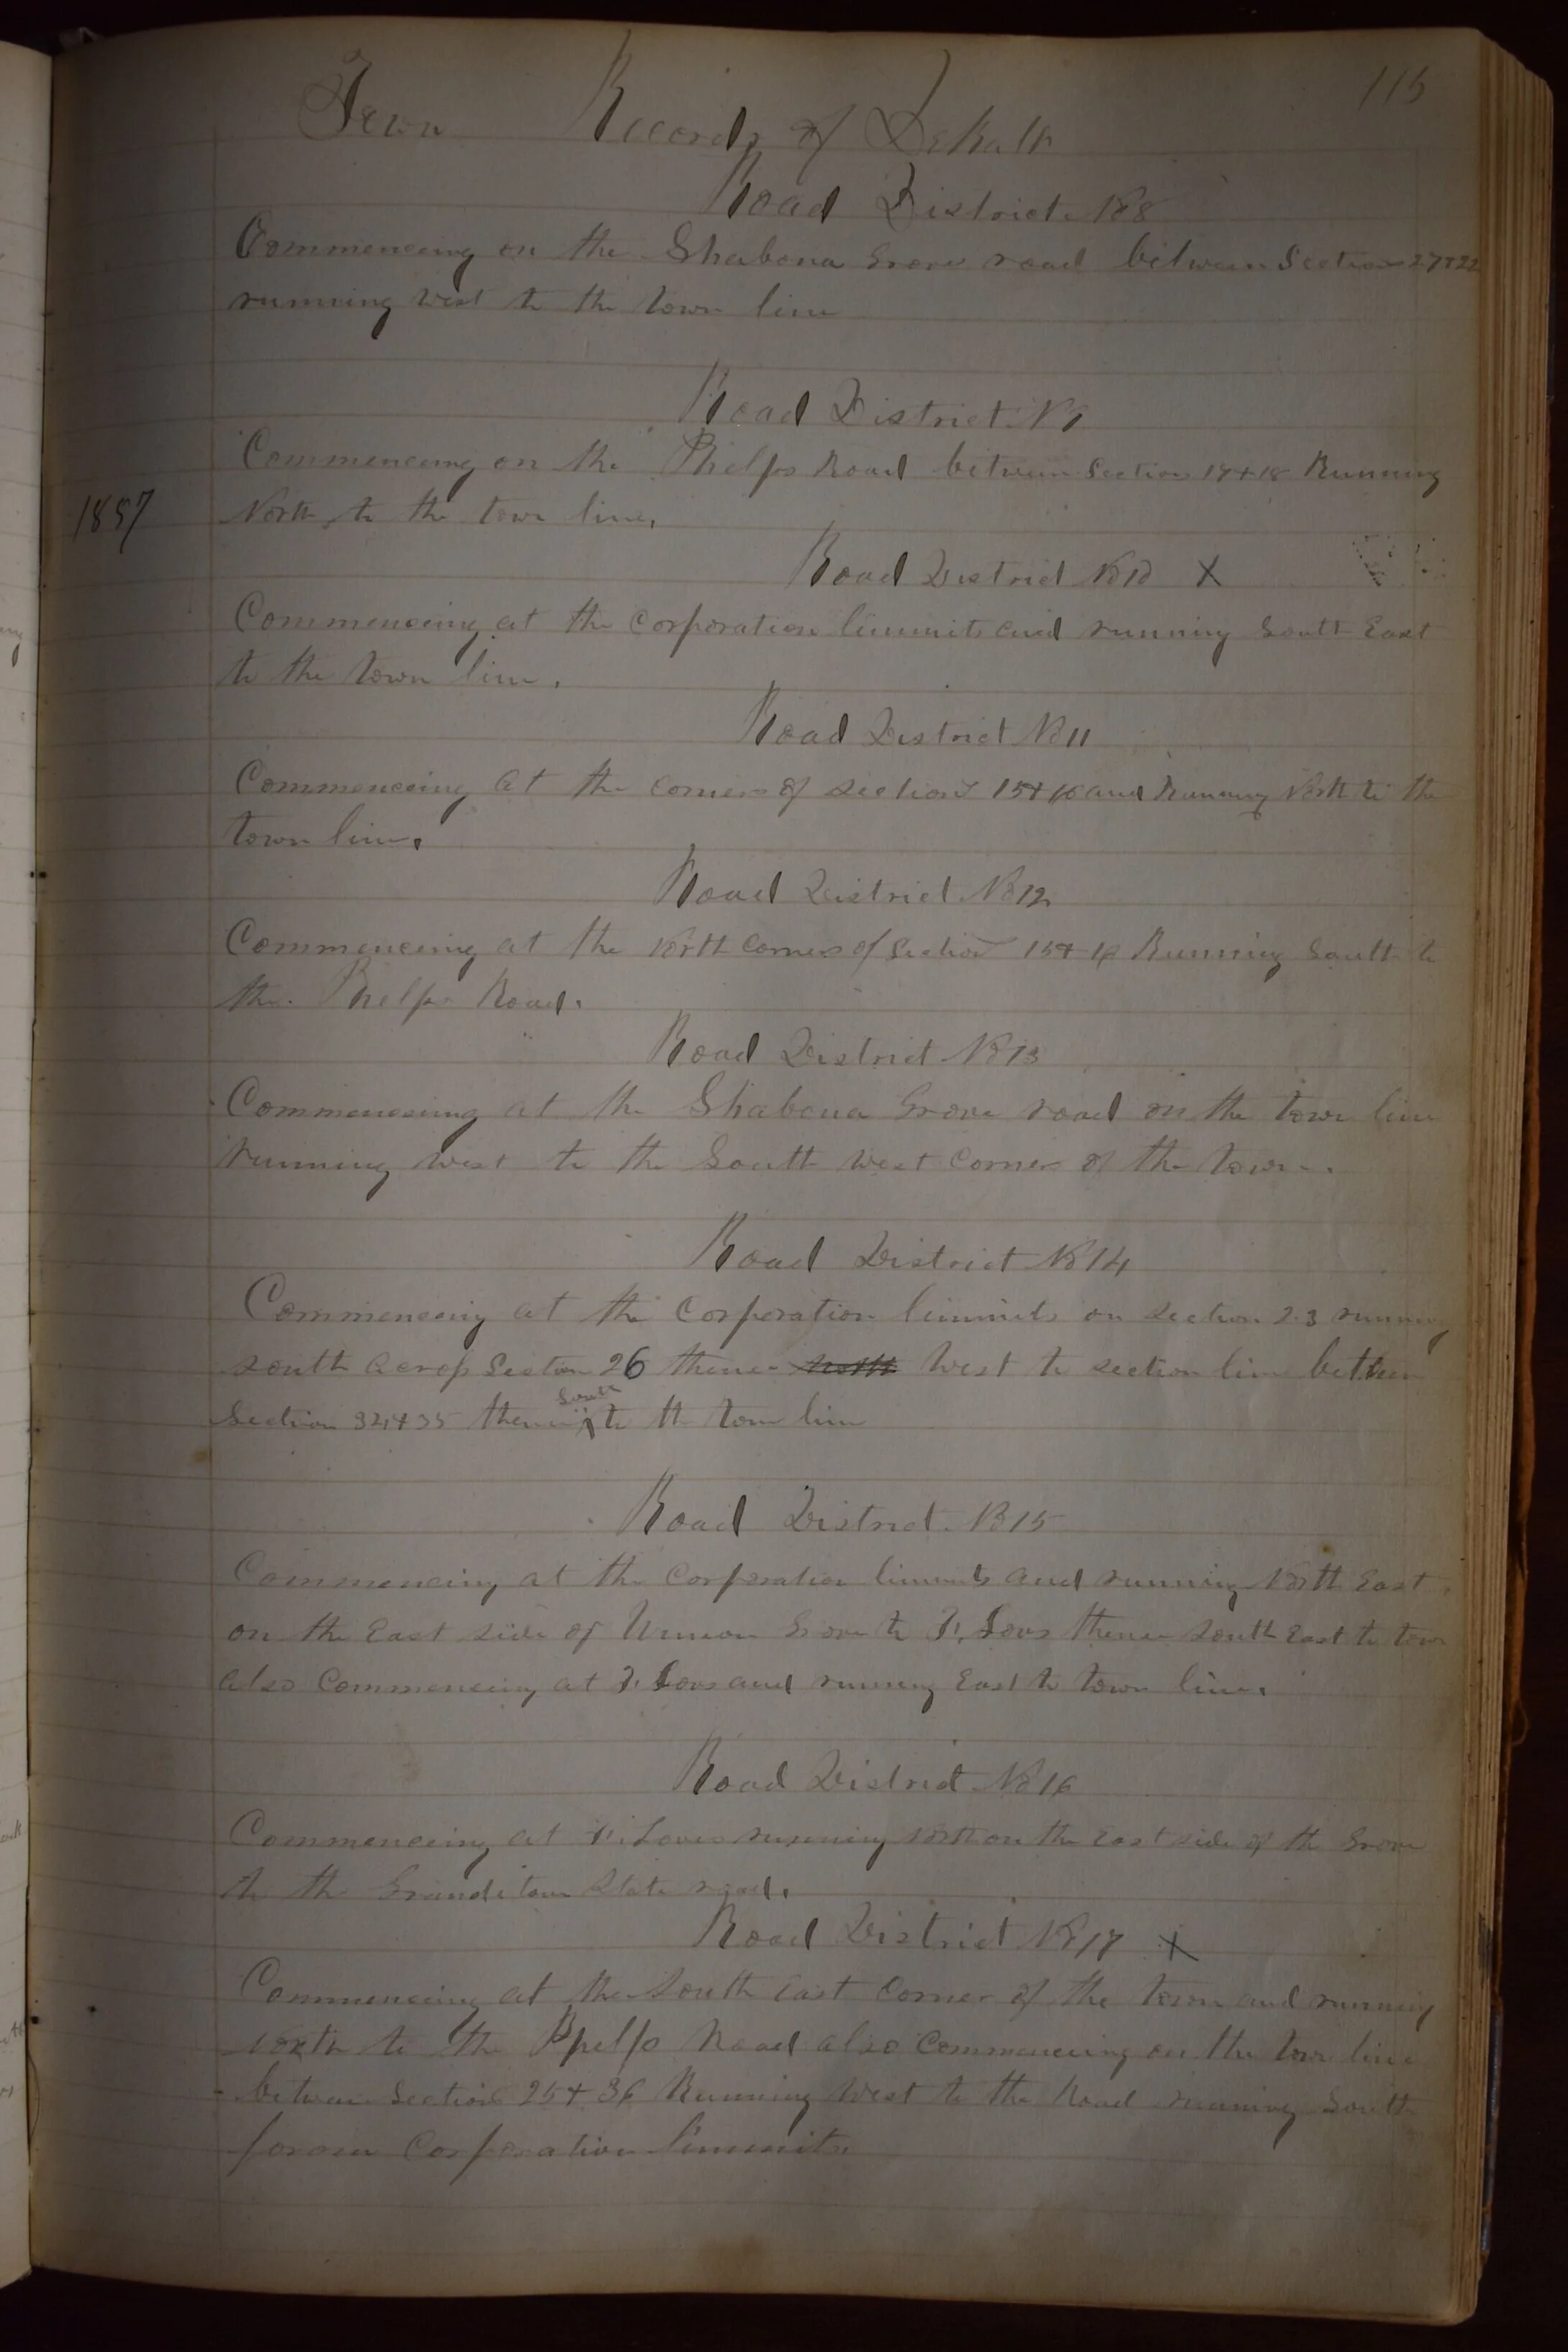 115
Town Records of DeKalb
Road District No 8
Commencing on the Shabona Grove road between Section 27+22
running West to the town line
Road District No 9
Commencing on the Phelps Road between Section 17+18 Running
1887
North to the town line,
Road District No 10 X
Commenceing at the Corporation limmits and running South East
to the town line.
Road District No 11
Commenceing at the corners of sections 15+16 and Running North to the
town line.
Road District No 12
Commenceing at the North Corners of Section 15+16 Running South to
the Phelps Road.
Road District No 13
Commenceing at the Shabona Grove road on the town line
Running West to the South West Corner of the town.
Road District No 14
Commenceing at the Corporation limmits on section 23 running
south across Section 26 thence north West to section line between
Section 34+35 thence South to the town line
Road District No 15
Commencing at the Corporation limmits and running North East
on the East side of Union Grove to thence South East to town
also Commencing at and running East to town line.
Road District No 16
Commenceing at running North on the East side of the Grove
to the State road.
Road District No 17 X
Commenceing at the South East Corner of the town and running
North to the Phelps Road also Commenceing on the town line
between Sections 25+36 Running West to the Road running South
forom Corporation limmits